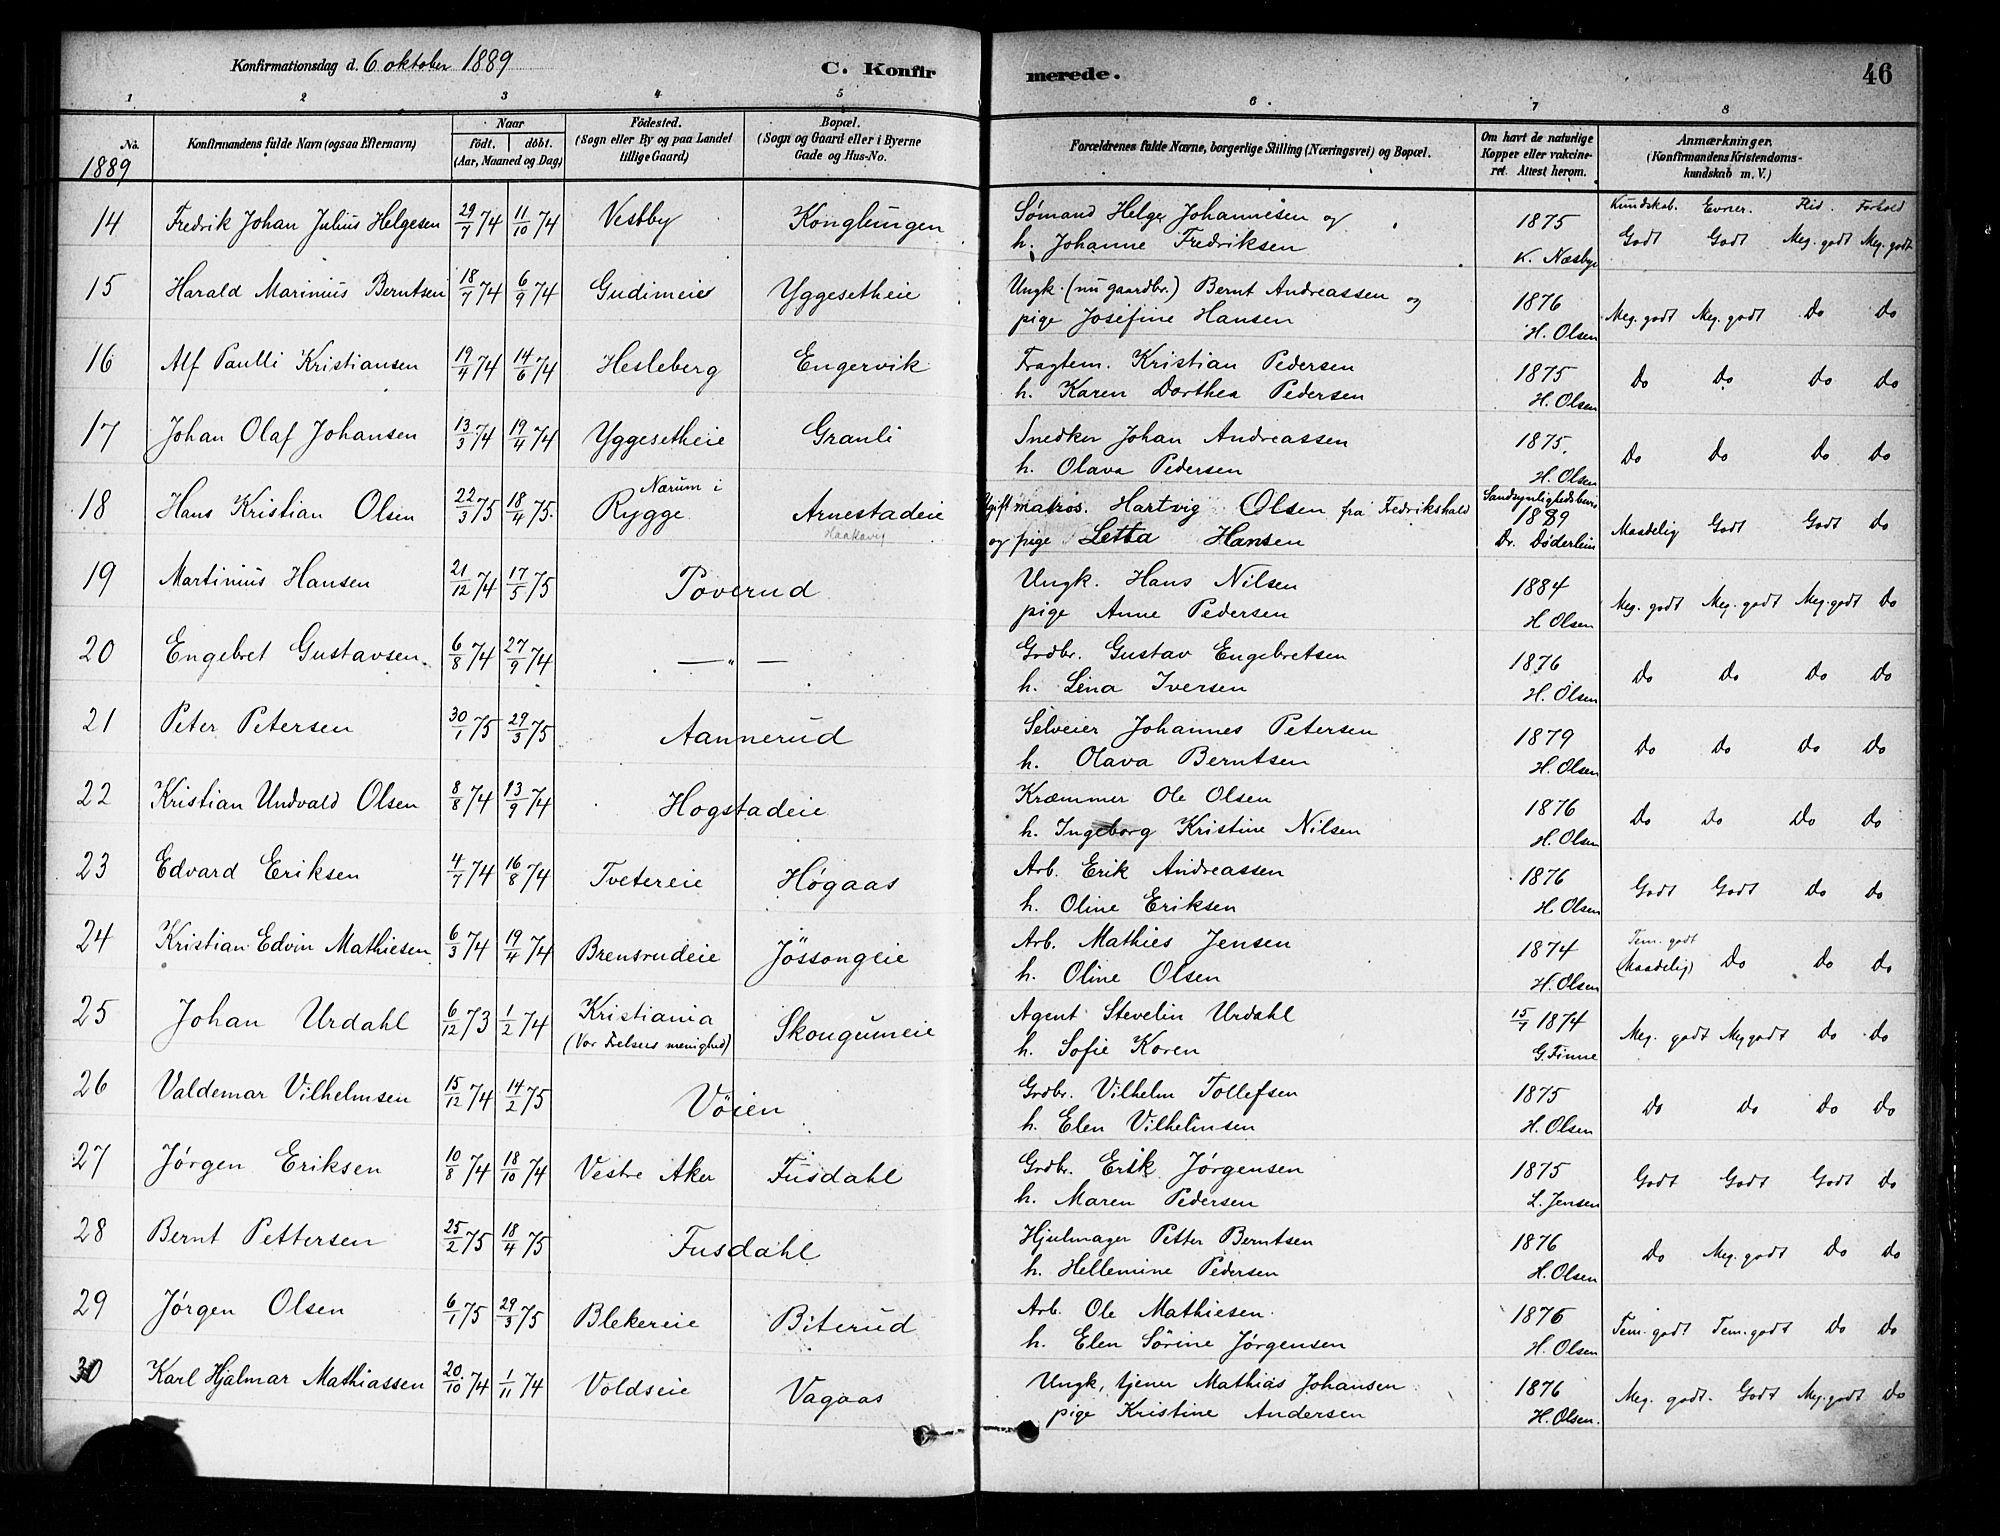 Konfirmationsdag d. 6 oktober 1889
C. Konfir
merede.
46
1 2 3 4 5 6 7 8
No. Konfirmandens fulde Navn (ogsaa Efternavn)
Naar
født. døbt.
(Aar, Maaned og Dag)
Fødested.
(Sogn eller By og paa Landet
tillige Gaard)
Bopæl.
(Sogn og Gaard eller i Byerne
Gade og Hus-No.
Forældrenes fulde Navne, borgerlige Stilling (Næringsvei) og Bopæl.
Om havt de naturlige
Kopper eller vakcine-
ret. Attest herom.
Anmærkninger.
(Konfirmandens Kristendoms-
kundskab m. V.)
1889
Kundskab. Evner. Flid. Forhold
14 Fredrik Johan Julius Helgesen 29/7 74 11/10 74 Vestby Konglungen Sømand Helge Johannesen og 1875 Godt Godt Meg. godt Meg. godt
h. Johanne Fredriksen K. Næsbye
15 Harald Marinius Berntsen 18/7 74 6/9 74 Gudimeie Yggesetheie Ungk. (nu gaardbr.) Bernt Andreassen og 1876 Meg. godt Meg. godt Do Do
pige Josefine Hansen H. Olsen
16 Alf Paulli Kristiansen 19/4 74 14/6 74 Hesleberg Engervik Fragtem. Kristian Pedersen 1875 Do Do Do Do
h. Karen Dorthea Pedersen H. Olsen
17 Johan Olaf Johansen 13/3 74 19/4 74 Yggesetheie Granli Snedker Johan Andreassen 1875. Do Do Do Do
h. Olava Pedersen H. Olsen
18 Hans Kristian Olsen 22/3 75 18/4 75. Nærum i Rygge Arnestadeie Ugift matros. Hartvig Olsen fra Fredrikshald Sandsynlighedsbevis 1889 Maadelig Godt Godt Do
Haakavig og pige Letta Hansen Dr. Døderlein
19 Martinius Hansen 21/12 74 17/5 75 Poverud Ungk. Hans Nilsen 1884 Meg. godt Meg. godt Meg. godt Do
pige Anne Pedersen H Olsen
20 Engebret Gustavsen. 6/8 74 27/9 74 — " — Grdbr. Gustav Engebretsen 1876 Do Do Do Do
h. Lina Iversen H. Olsen
21 Peter Petersen 30/1 75 29/3 75 Aannerud Selveier Johannes Petersen 1879 Do Do Do Do
h. Olava Berntsen H. Olsen
22 Kristian Undvald Olsen 8/8 74 13/9 74 Hogstadeie Kræmmer Ole Olsen 1876 Do Do Do Do
h. Ingeborg Kristine Nilsen H. Olsen
23 Edvard Eriksen 4/7 74 16/8 74 Tvetereie Høgaas Arb. Erik Andreassen 1876 Godt Godt Do Do
h. Oline Eriksen H Olsen
24 Kristian Edvin Mathiesen 6/3 74 19/4 74 Brensrudeie Jössongeie Arb. Mathies Jensen 1874 Tem. godt (Maadelig) Do Do Do
h. Oline Olsen H. Olsen
25 Johan Urdahl 6/12 73 1/2 74 Kristiania Skougumeie Agent Stevelin Urdahl 15/7 1874 Meg. godt Meg godt Do Do
(Vor Frelsers menighed) h. Sofie Koren G. Finne
26 Valdemar Vilhelmsen 15/12 74 14/2 75 Vöien Grdbr. Vilhelm Tollefsen 1875 Do Do Do Do
h. Elen Vilhelmsen H. Olsen
27 Jørgen Eriksen 10/8 74 18/10 74 Vestre Aker Fusdahl Grdbr. Erik Jørgensen 1875 Godt Godt Godt Do
h. Maren Pedersen L. Jensen
28 Bernt Pettersen 25/2 75 18/4 75 Fusdahl Hjulmager Petter Berntsen 1876 Do Meg. godt Do Do
h. Hellemine Pedersen H. Olsen
29 Jørgen Olsen 6/1 75 29/3 75 Blekereie Biterud Arb. Ole Mathiesen. 1876 Tem. godt Tem. godt Do Do
h. Elen Sörine Jørgensen H. Olsen
30 Karl Hjalmar Mathiassen 20/10 74 1/11 74 Voldseie Vagaas Ungk, tjener Mathias Johansen 1876 Meg. godt. Godt Meg. godt Do
pige Kristine Andersen H. Olsen.